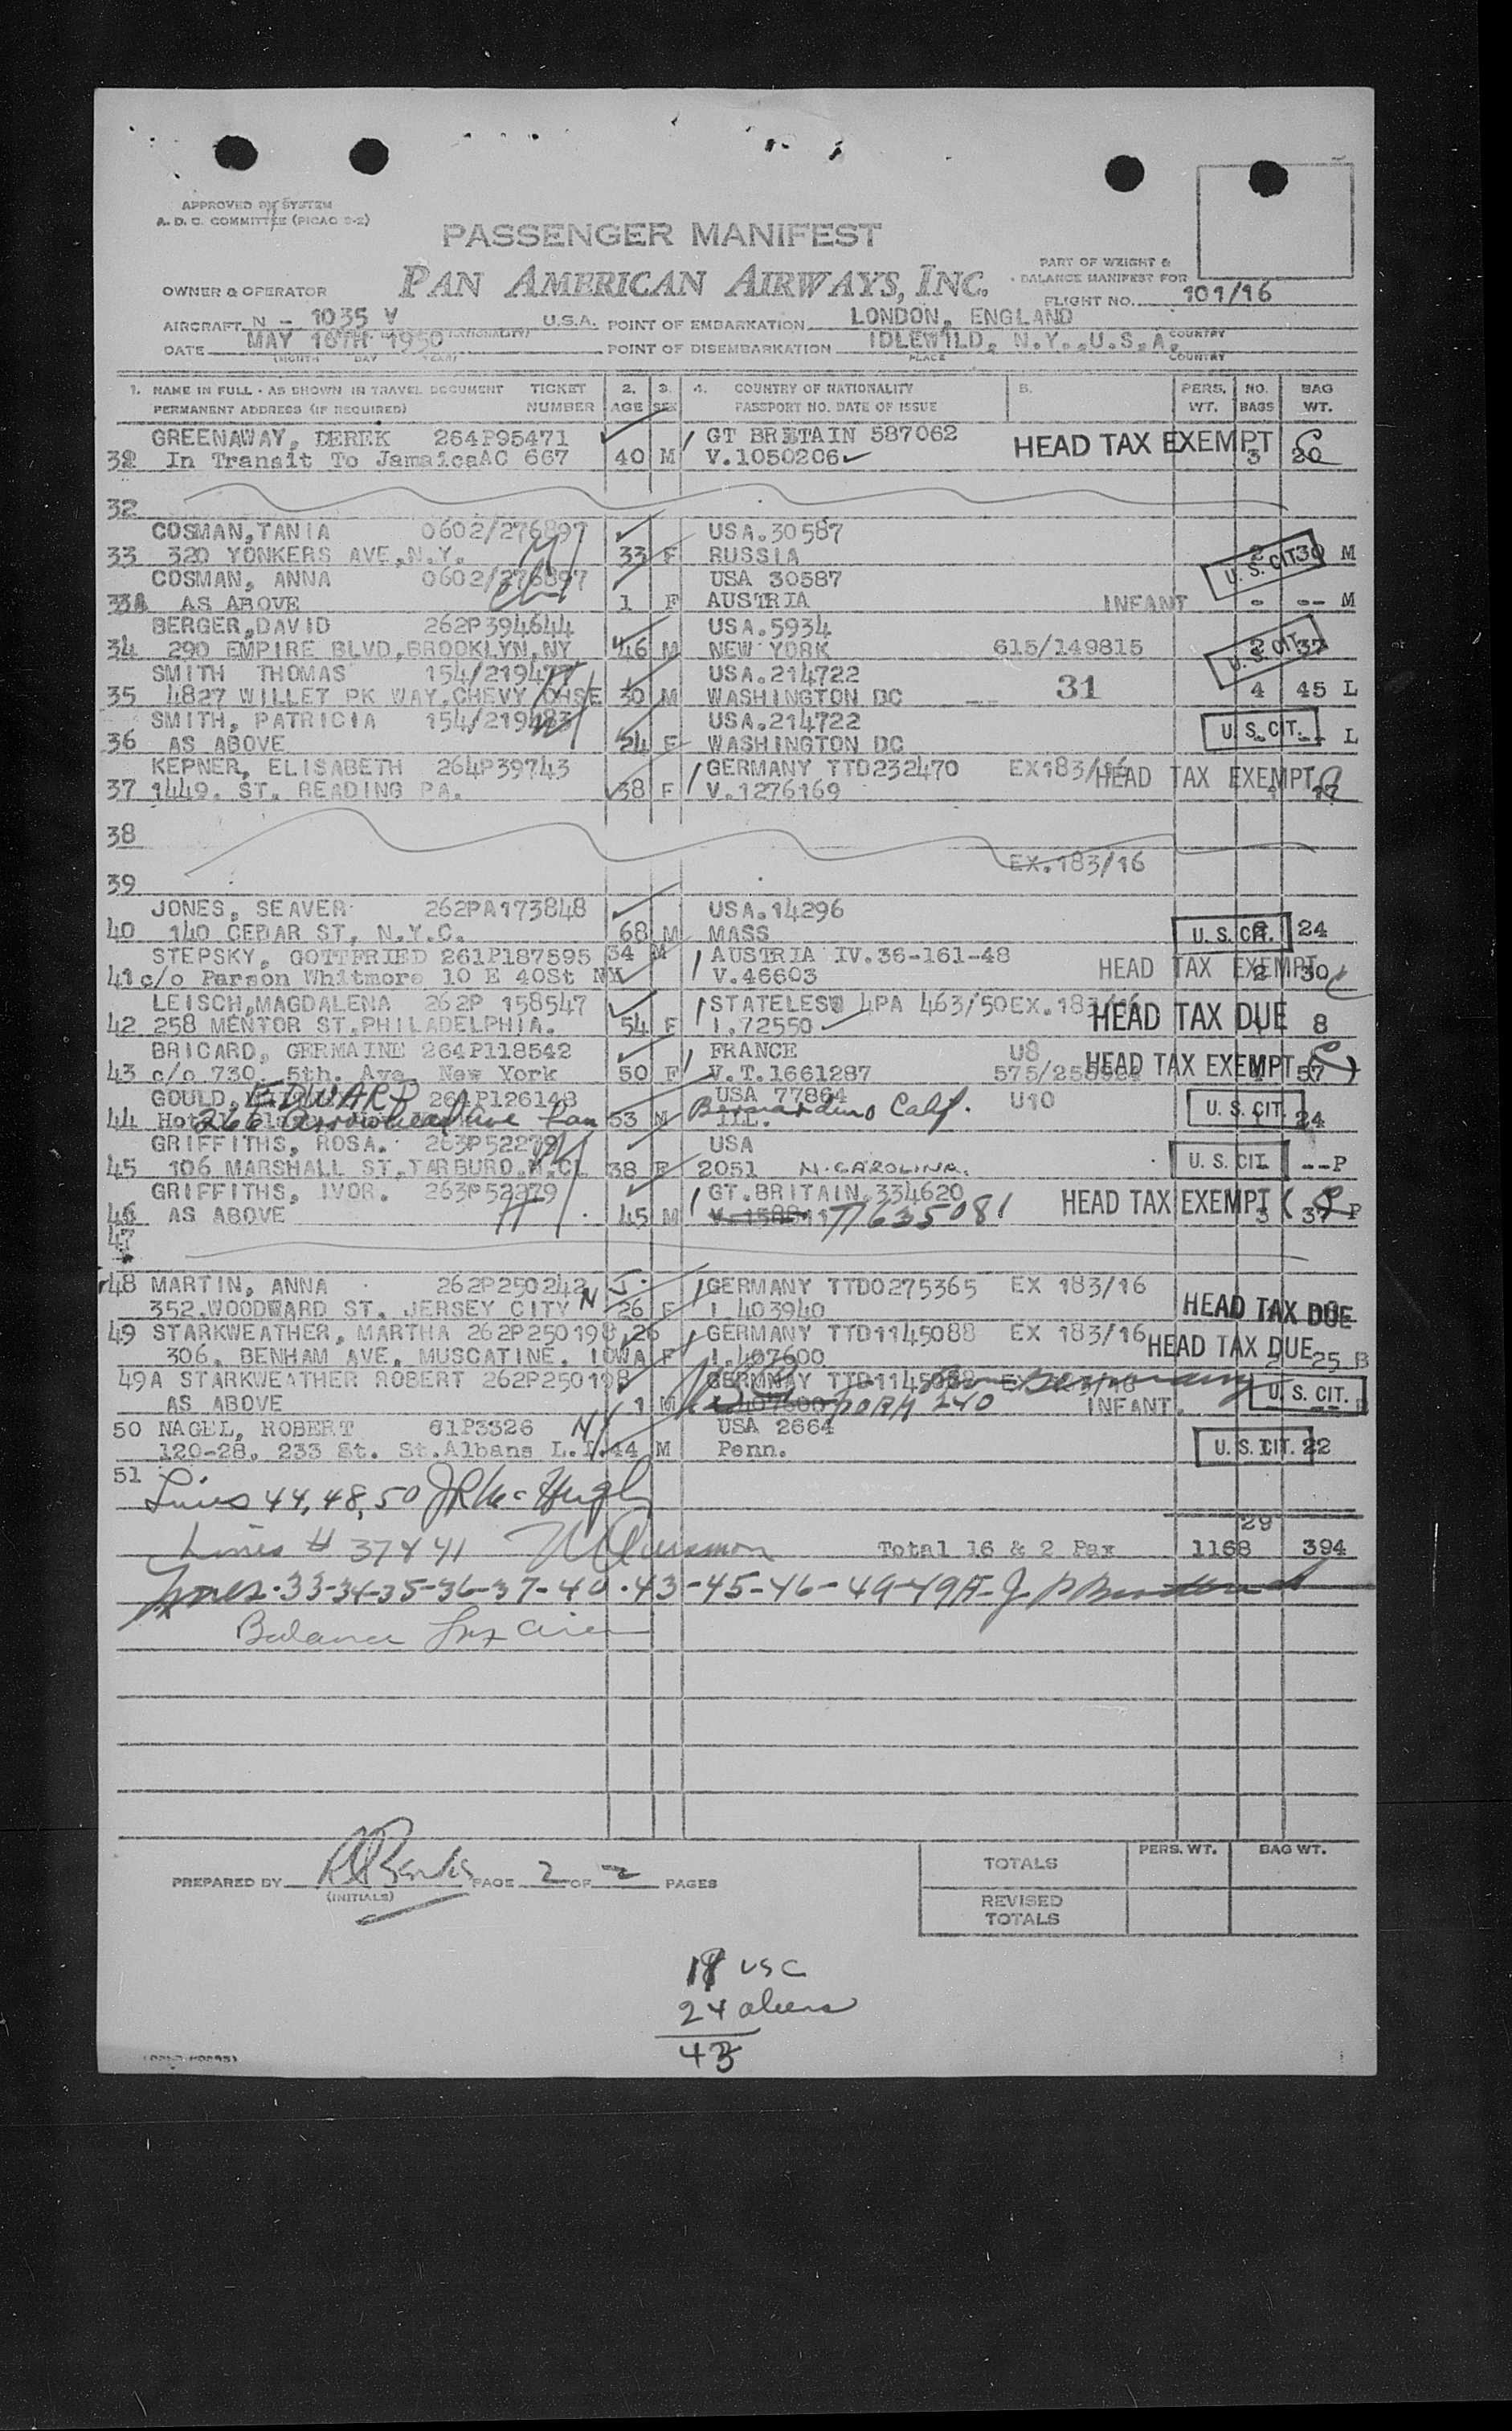 APPROVED BY SYSTEM
A. D. C. COMMITTEE (PICAO S-2)
PASSENGER MANIFEST
PAN AMERICAN AIRWAYS, INC.
PART OF WEIGHT &
BALANCE MANIFEST FOR
FLIGHT NO. 101/16
OWNER & OPERATOR
AIRCRAFT N - 1035 V U.S.A. POINT OF EMBARKATION LONDON, ENGLAND
DATE MAY 16TH 1950 POINT OF DISEMBARKATION IDLEWILD, N.Y.,U.S.A. COUNTRY
PLACE COUNTRY
1. NAME IN FULL - AS SHOWN IN TRAVEL DOCUMENT TICKET 2. 3. 4. COUNTRY OF NATIONALITY 5. PERS. NO. BAG
PERMANENT ADDRESS (IF REQUIRED) NUMBER AGE SEX PASSPORT NO. DATE OF ISSUE WT. BAGS WT.
GREENAWAY, DEREK 264P95471 GT BRETAIN 587062 HEAD TAX EXEMPT
In Transit To JamaicaAC 667 40 M V.1050206 3 20
32
COSMAN,TANIA 0602/276897 USA.30587
33 320 YONKERS AVE,N.Y. 33 F RUSSIA 2 30 M U. S. CIT.
COSMAN, ANNA 0602/276897 USA 30587
33A AS ABOVE 1 F AUSTRIA INFANT - -- M
BERGER,DAVID 262P394644 USA.5934
34 290 EMPIRE BLVD,BROOKLYN,NY 46 M NEW YORK 615/149815 U. S. CIT.
SMITH THOMAS USA.214722
35 4827 WILLET PK WAY,CHEVY CHSE 30 M WASHINGTON DC 31 4 45 L
SMITH, PATRICIA 154/219483 USA.214722
36 AS ABOVE 24 F WASHINGTON DC U. S. CIT. L
KEPNER, ELISABETH 264P39743 GERMANY TTD232470 EX183/16 HEAD TAX EXEMPT
37 1449. ST. READING PA. 38 F V.1276169 17
38
EX.183/16
39
JONES, SEAVER 262PA173848 USA.14296
40 140 CEDAR ST, N.Y.C. 68 M MASS U. S. CIT. 24
STEPSKY, GOTTFRIED 261P187595 34 M AUSTRIA IV.36-161-48 HEAD TAX EXEMPT
41 c/o Parson Whitmore 10 E 40St NY V.46603 2 30
LEISCH,MAGDALENA 262P 158547 STATELESS 4PA 463/50EX.183/16 HEAD TAX DUE
42 258 MENTOR ST.PHILADELPHIA. 54 F I.72550 8
BRICARD, GERMAINE 264P118542 FRANCE U8 HEAD TAX EXEMPT
43 c/o 730. 5th. Ave New York 50 F V.T.1661287 57
GOULD, EDWARD 264P126148 USA 77864 U10
44 266 Arrowhead Ave San 53 M Bernardino Calif. ILL. U. S. CIT. 24
GRIFFITHS, ROSA. 263P52279 USA
45 106 MARSHALL ST,TARBURO.N.CL 38 F 2051 N. CAROLINA. U. S. CIT. --P
GRIFFITHS, IVOR. 263P52279 GT.BRITAIN.334620 HEAD TAX EXEMPT
46 AS ABOVE 45 M 3 37 P
47
48 MARTIN, ANNA 262P250242 GERMANY TTD0275365 EX 183/16
352.WOODWARD ST. JERSEY CITY 26 F I 403940 HEAD TAX DUE
49 STARKWEATHER, MARTHA 262P250198 26 GERMANY TTD1145088 EX 183/16 HEAD TAX DUE
306. BENHAM AVE, MUSCATINE. IOWA F I.407600 25 B
49A STARKWEATHER ROBERT 262P250198 GERMNAY TTD1145088 U. S. CIT.
AS ABOVE 1 M INFANT.
50 NAGEL, ROBERT 61P3326 NY USA 2664
120-28. 233 St. St.Albans L.I. 44 M Penn. U. S. CIT. 22
51
Lines 44, 48, 50
29
Lines # 37 & 41 Total 16 & 2 Pax 1168 394
Lines-33-34-35-36-37-40-43-45-46-49-49A-
Balance
PREPARED BY PAGE 2 OF 2 PAGES
(INITIALS)
PERS. WT. BAG WT.
TOTALS
REVISED
TOTALS
USC
24 aliens
43